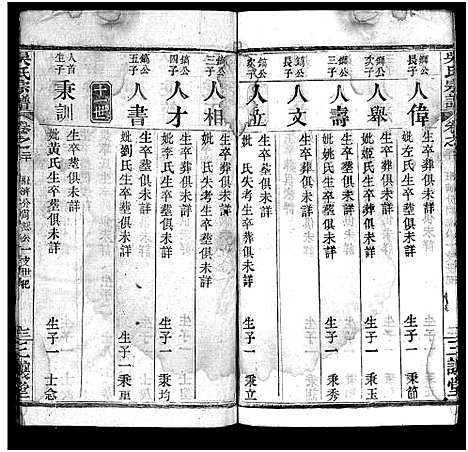 吳氏宗譜
卷之
三讓堂
鏞公長子
人偉
生卒葬俱未詳
妣左氏生卒葬俱未詳
生子一 秉節
鏞公次子
人舉
生卒葬俱未詳
妣姬氏生卒葬俱未詳
生子一 秉玉
鏞公三子
人壽
生卒葬俱未詳
妣姚氏生卒葬俱未詳
生子一 秉秀
鎬公長子
人文
生卒葬俱未詳
鎬公次子
生卒葬俱未詳
生子一 秉立
鎬公三子
人相
生卒葬俱未詳
妣 氏失考生卒葬俱未詳
鎬公四子
人才
生卒葬俱未詳
妣李氏生卒葬俱未詳
生子一 秉均
鎬公五子
人書
生卒墓俱未詳
妣劉氏生卒墓俱未詳
生子一 秉重
十二世
人首生子
秉訓
生卒墓俱未詳
妣黃氏生卒墓俱未詳
生子一 士念
吳氏宗譜
卷之
三讓堂